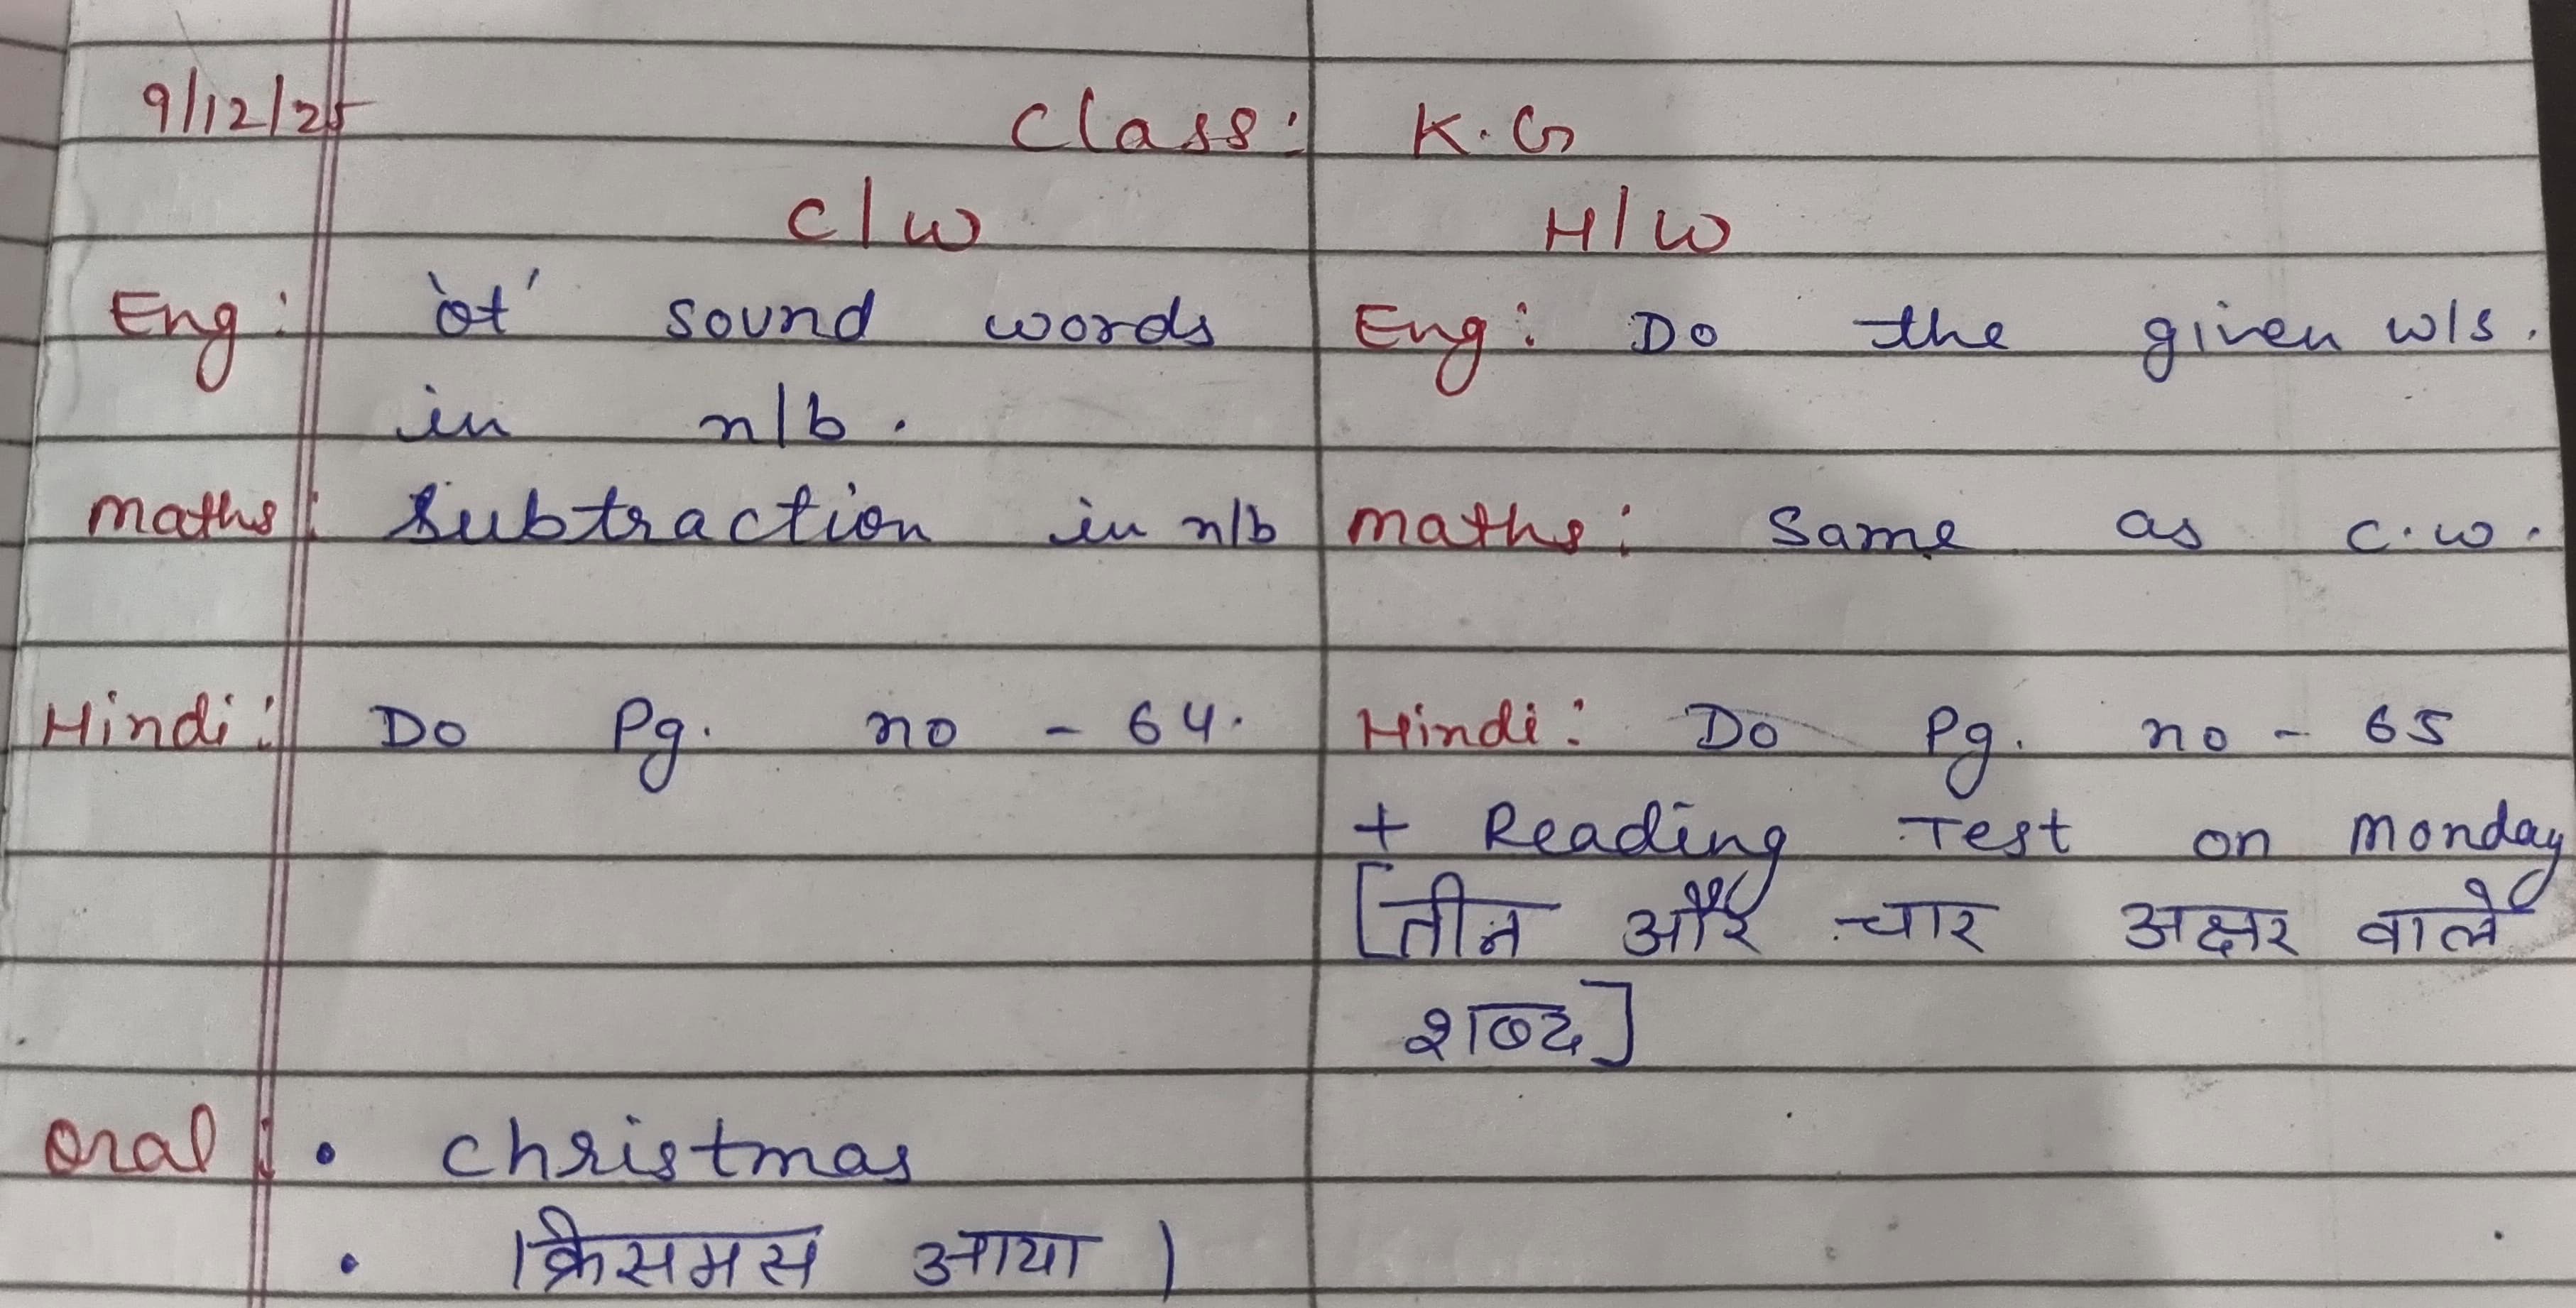 9/12/25 Class: K.G
C/W H/W
Eng: 'ot' sound words Eng: Do the given w/s.
in n/b.
Maths: Subtraction in n/b Maths: Same as c.w.
Hindi: Do Pg. no - 64. Hindi: Do Pg. no - 65
+ Reading Test on Monday
[तीन और चार अक्षर वाले
शब्द]
Oral: • Christmas
• क्रिसमस आया।